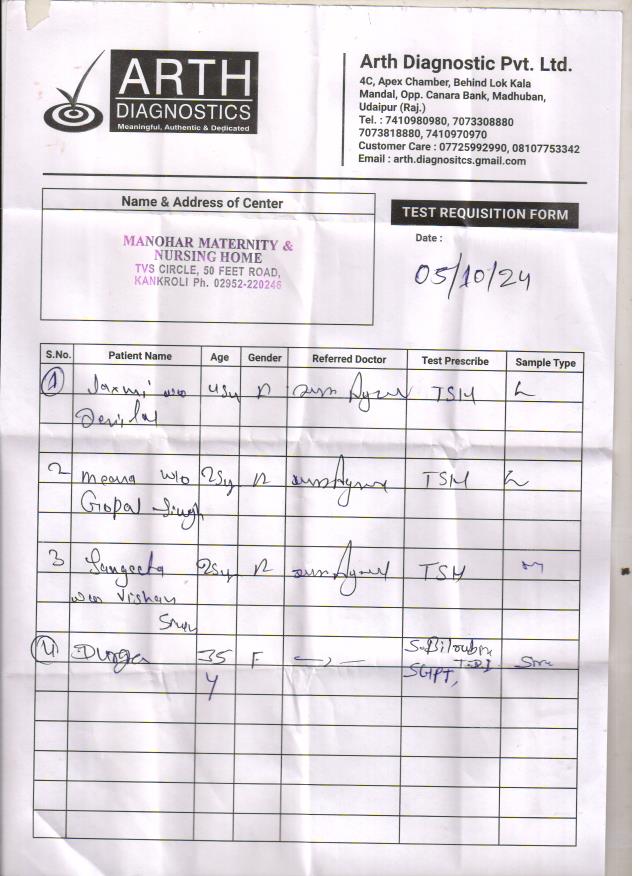 ARTH
DIAGNOSTICS
Meaningful, Authentic & Dedicated
Arth Diagnostic Pvt. Ltd.
4C, Apex Chamber, Behind Lok Kala
Mandal, Opp. Canara Bank, Madhuban,
Udaipur (Raj.)
Tel. : 7410980980, 7073308880
7073818880, 7410970970
Customer Care : 07725992990, 08107753342
Email : arth.diagnositcs.gmail.com
Name & Address of Center
MANOHAR MATERNITY &
NURSING HOME
TVS CIRCLE, 50 FEET ROAD,
KANKROLI Ph. 02952-220246
TEST REQUISITION FORM
Date :
05/10/24
S.No. Patient Name Age Gender Referred Doctor Test Prescribe Sample Type
1 Laxmi w/o TSH
2 Meena w/o 25y TSH
Gopal Singh
3 Sangeeta 25y TSH
w/o Vishan
4 Durga 35 F S. Bilirubin
Y SGPT,